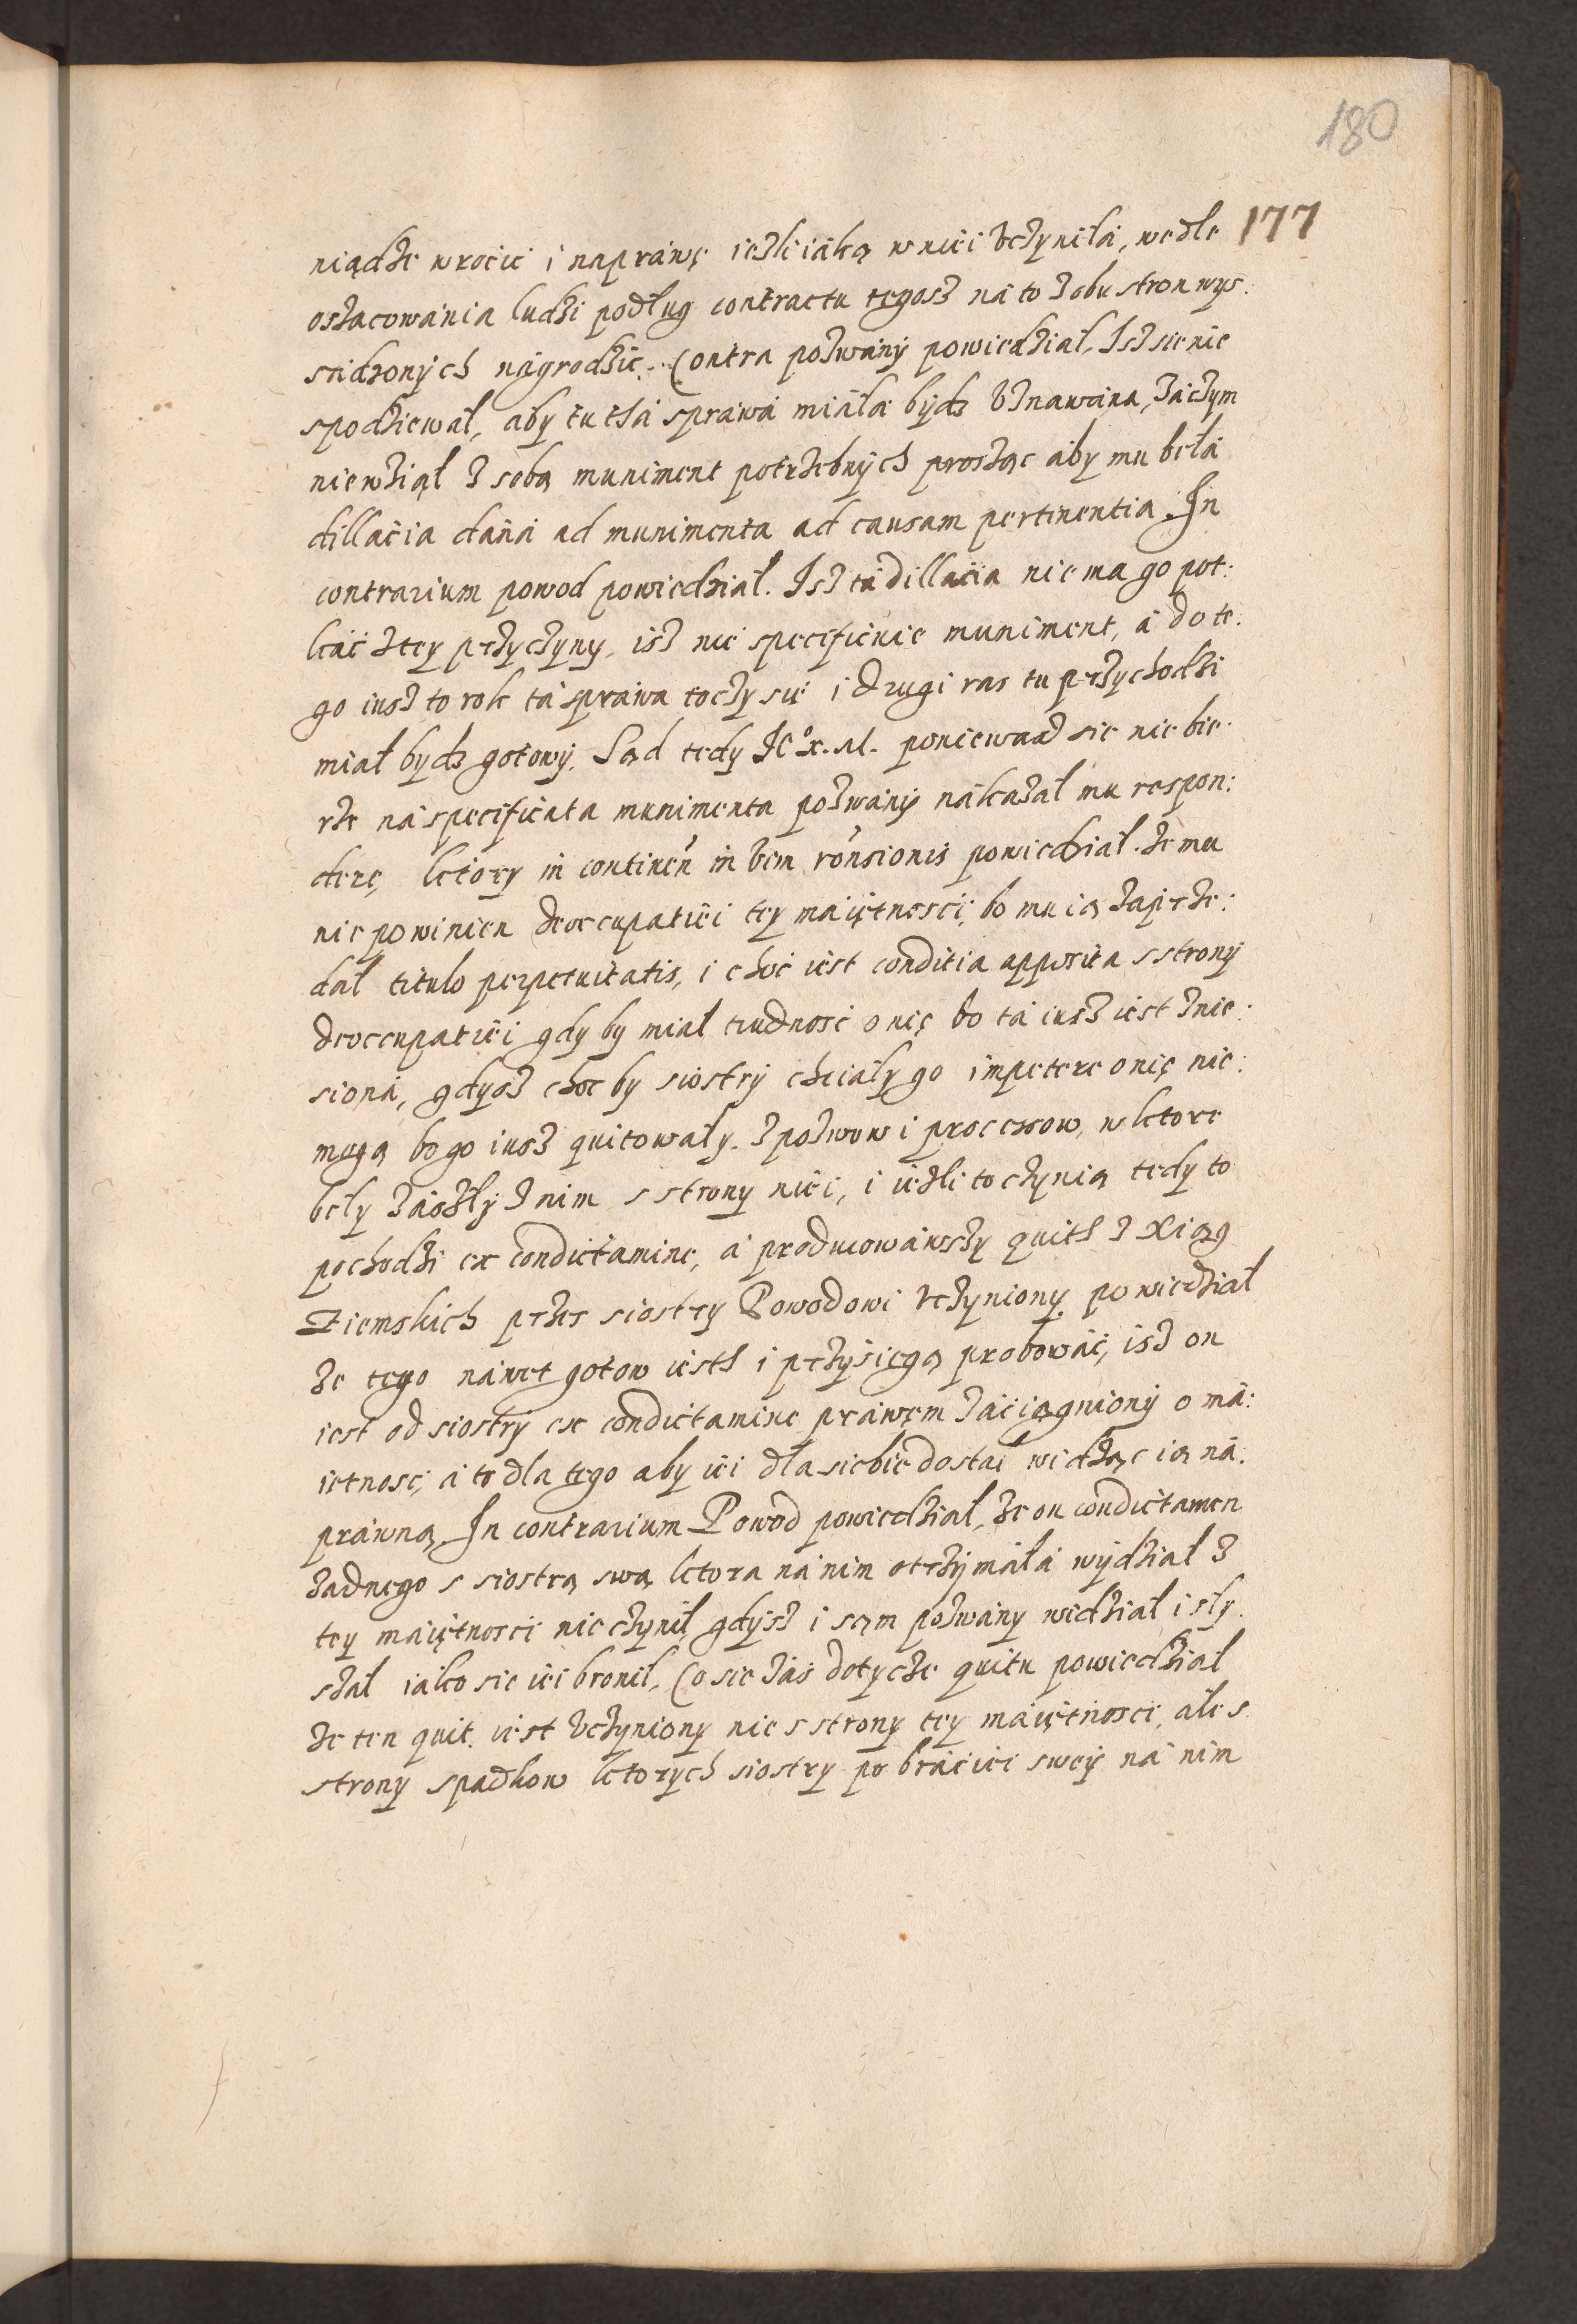 180
177
niądze wrocic i naprawę iezli iaką w niei vczyniła, wedle
oszacowania ludzi podług contractu tegosz na to z obu stron wys:
sadzonych nagrodzic. Contra pozwany powiedział, Isz sie nie
spodziewał, aby tu tha sprawa miała bydz vznawana, zaczym
niewziął z sobą muniment potrzebnych prosząc aby mu beła
dillacia dana ad munimenta ad causam pertinentia. In
contrarium powod powiedział. Isz ta dillacia nie ma go pot:
kac z tey przyczyny, isz nie specificuie muniment, a do te:
go iusz to rok ta sprawa toczy sie i drugi ras tu przychodzi
miał bydz gotowy. Sąd tedy Ic° x. M. poniewaz sie nie bie
rze na specificata munimenta pozwany nakazał mu respon:
dere, ktory in continen in vim ronsionis powiedział. ze mu
nie powinien deoccupatiei tey maiętnosci, bo mu ią zaprze:
dał titulo perpetuitatis, i choc iest conditia apposita s strony
deoccupatiei gdy by miał trudnosc o nię bo ta iusz iest znie:
siona, gdysz choc by siostry chciały go impetere o nię nie:
mogą bo go iusz quitowały. z pozwow i processow, w ktore
beły zaszły z nim s strony niei, i iezli to czynią tedy to
pochodzi ex condictamine, a producowawszy quith z Xiąg
Ziemskich przez siostry Powodowi vczyniony. powiedział
ze tego nawet gotow iesth i przysięgą probowac, isz on
iest od siostry ex condictamine prawem zaciągniony o ma:
ietnosc, a to dla tego aby iei dla siebie dostał widząc ią na:
prawną. In contrarium Powod powiedział, ze on condictamen
zadnego s siostrą swą ktora na nim otrzymała wydział z
tey maiętnosci nie czynił, gdysz i sam pozwany widział i sły
szał iako sie iei bronił, Co sie zas dotycze quitu powiedział
ze ten quit iest vczyniony nie s strony tey maiętnosci, ale s
strony spadkow ktorych siostry po braciei swey na nim